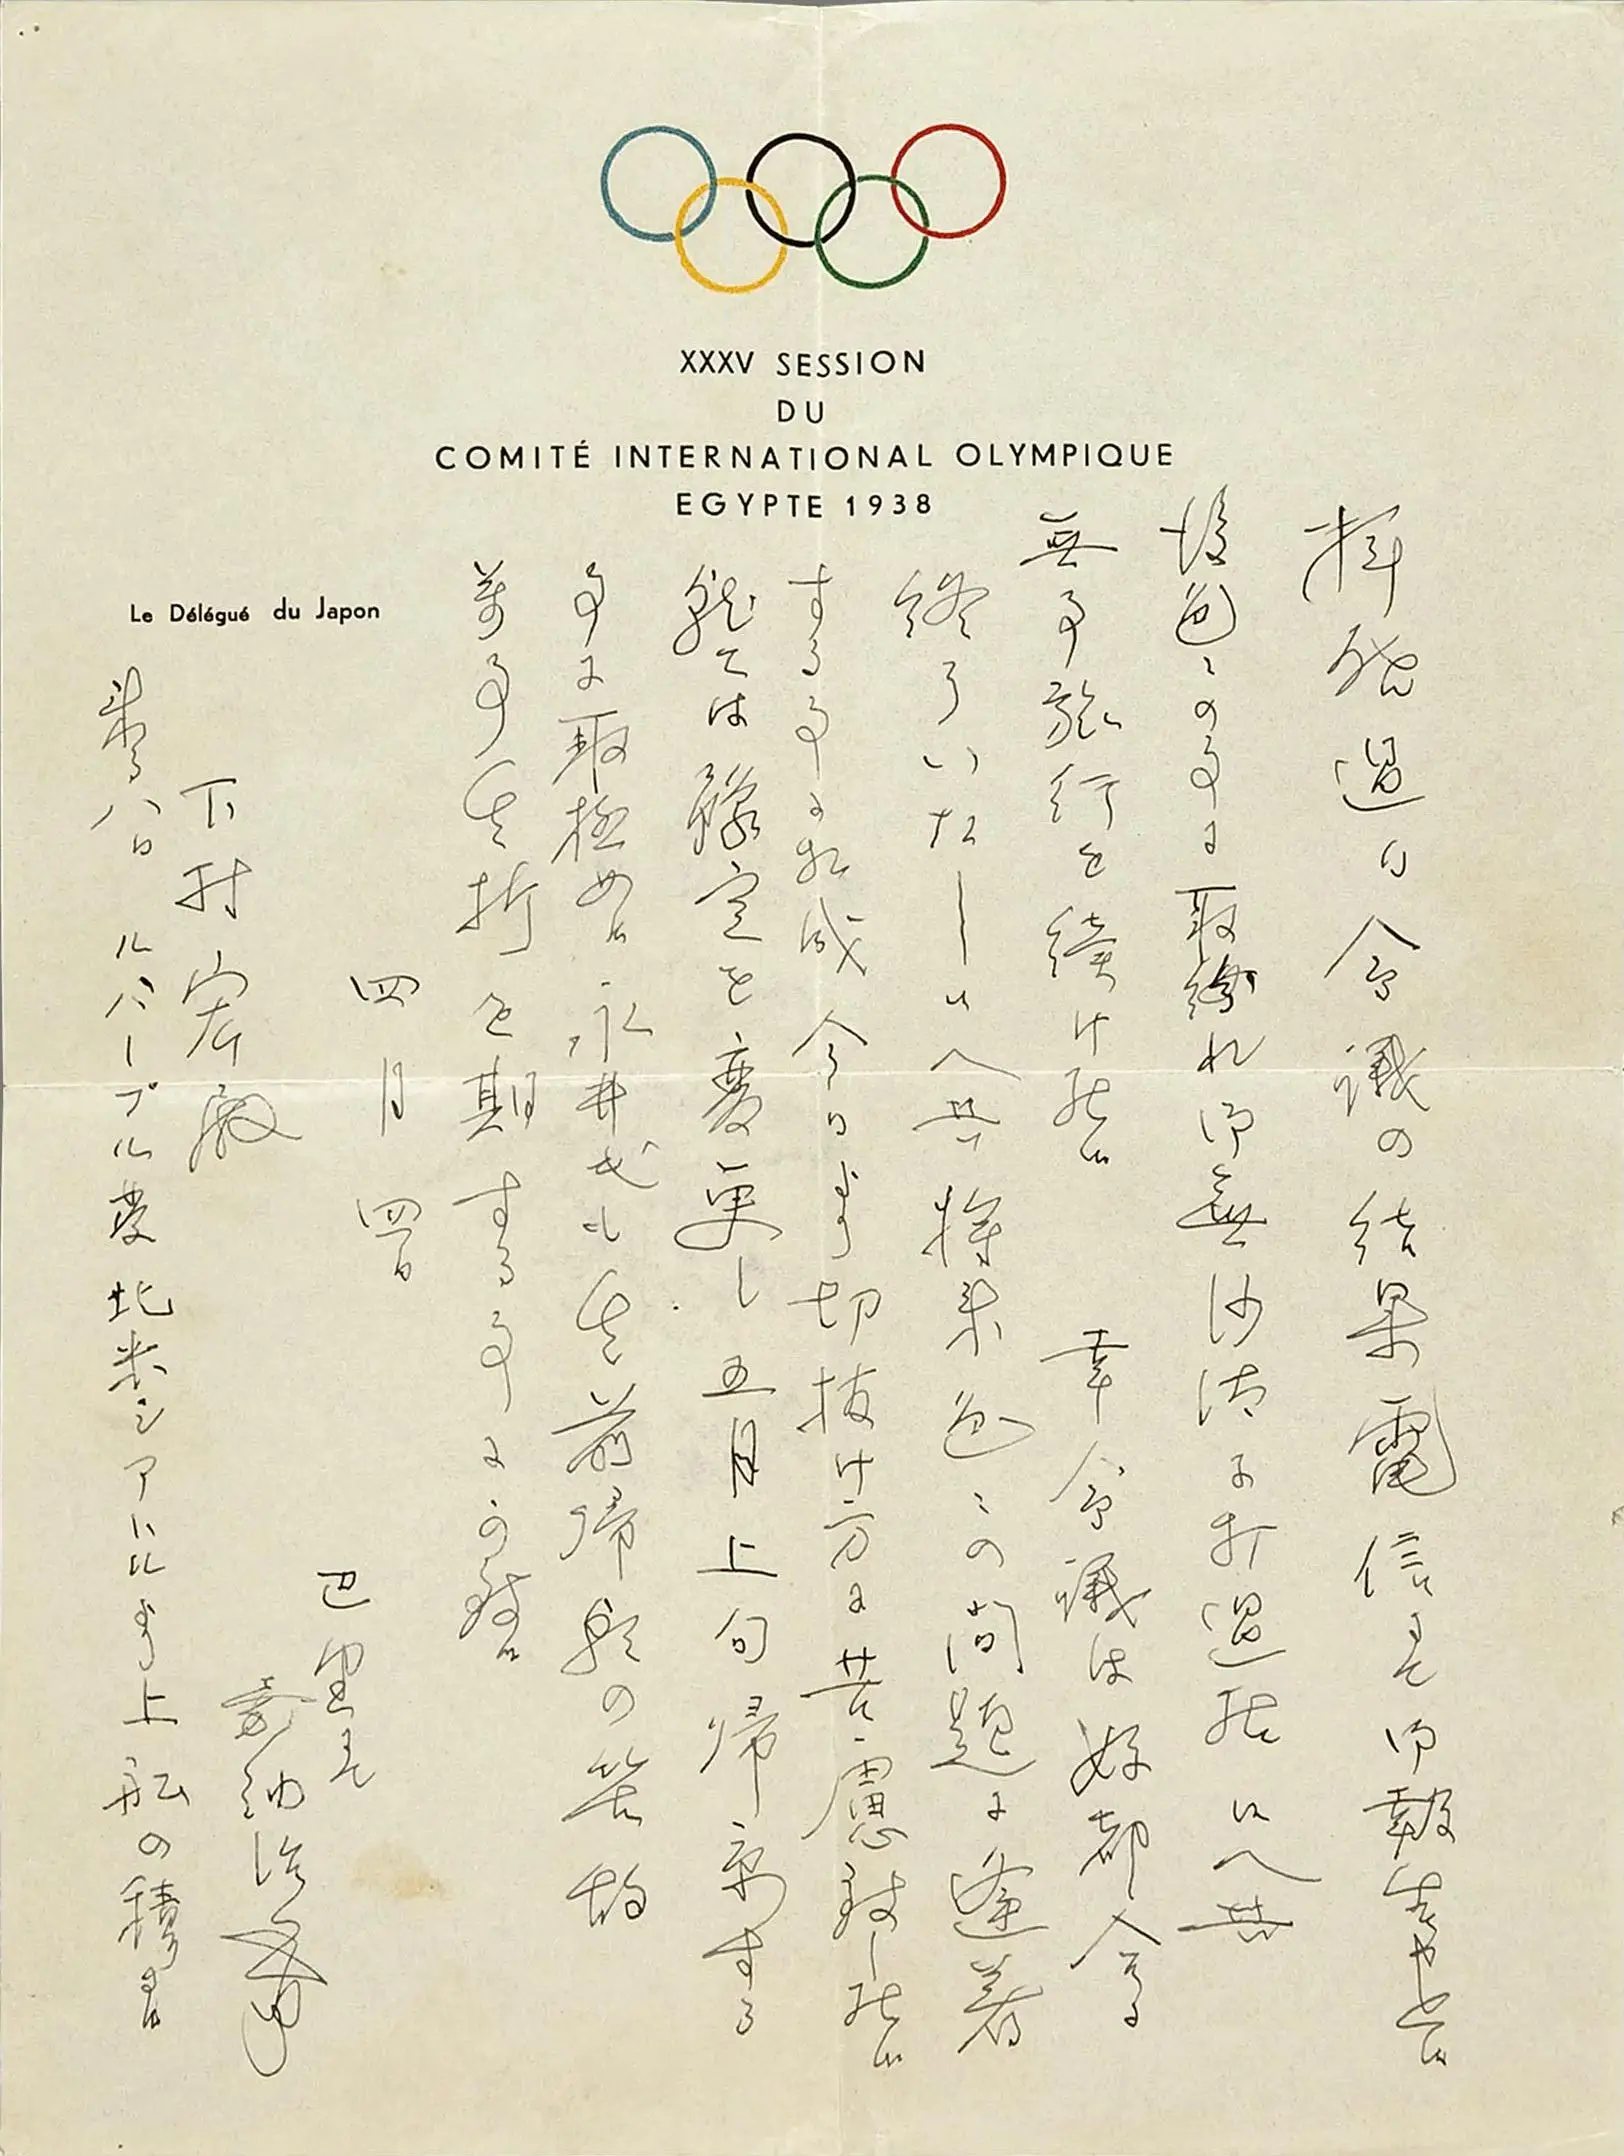 XXXV SESSION
DU
COMITÉ INTERNATIONAL OLYMPIQUE
EGYPTE 1938
Le Délégué du Japon
拝啓 過日会議の結果電信にて御報告申上候
後色々の事に取紛れ御無沙汰に打過候
無事旅行を続け候 幸会議は好都合に
終了いたし候へ共将来色々の問題に逢着
する事に相成今日より切抜け方に苦慮致し候
就ては予定を変更し五月上旬帰京する
事に取極め候 永井氏も生前帰朝の筈故
萬事 を期する事に可致候
四月四日
巴里にて
嘉納治五郎
下村宏殿
来る八日ルハーブル発北米シアトルより上船の積に候